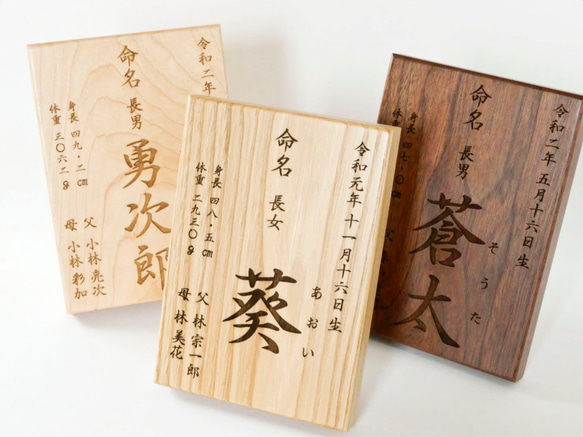 令和二年
命名 長男
勇次郎
身長 四九・二cm
体重 三〇六二g
父 小林亮次
母 小林彩加
令和元年 十一月十六日生
命名 長女
葵
あおい
身長 四八・五cm
体重 二九三〇g
父 林宗一郎
母 林美花
令和二年五月十六日生
命名 長男
蒼太
そうた